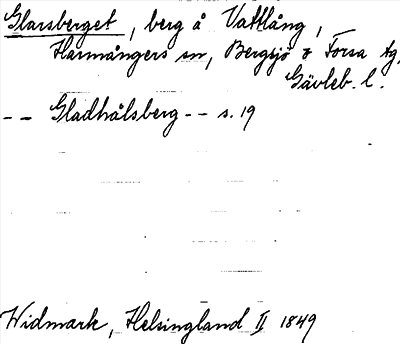 Glarsberget, berg å Vattlång,
Harmångers sn, Bergsjö o Forsa tg,
Gävleb. l.
-- Gladhålsberg -- s. 19
Widmark, Helsingland II 1849